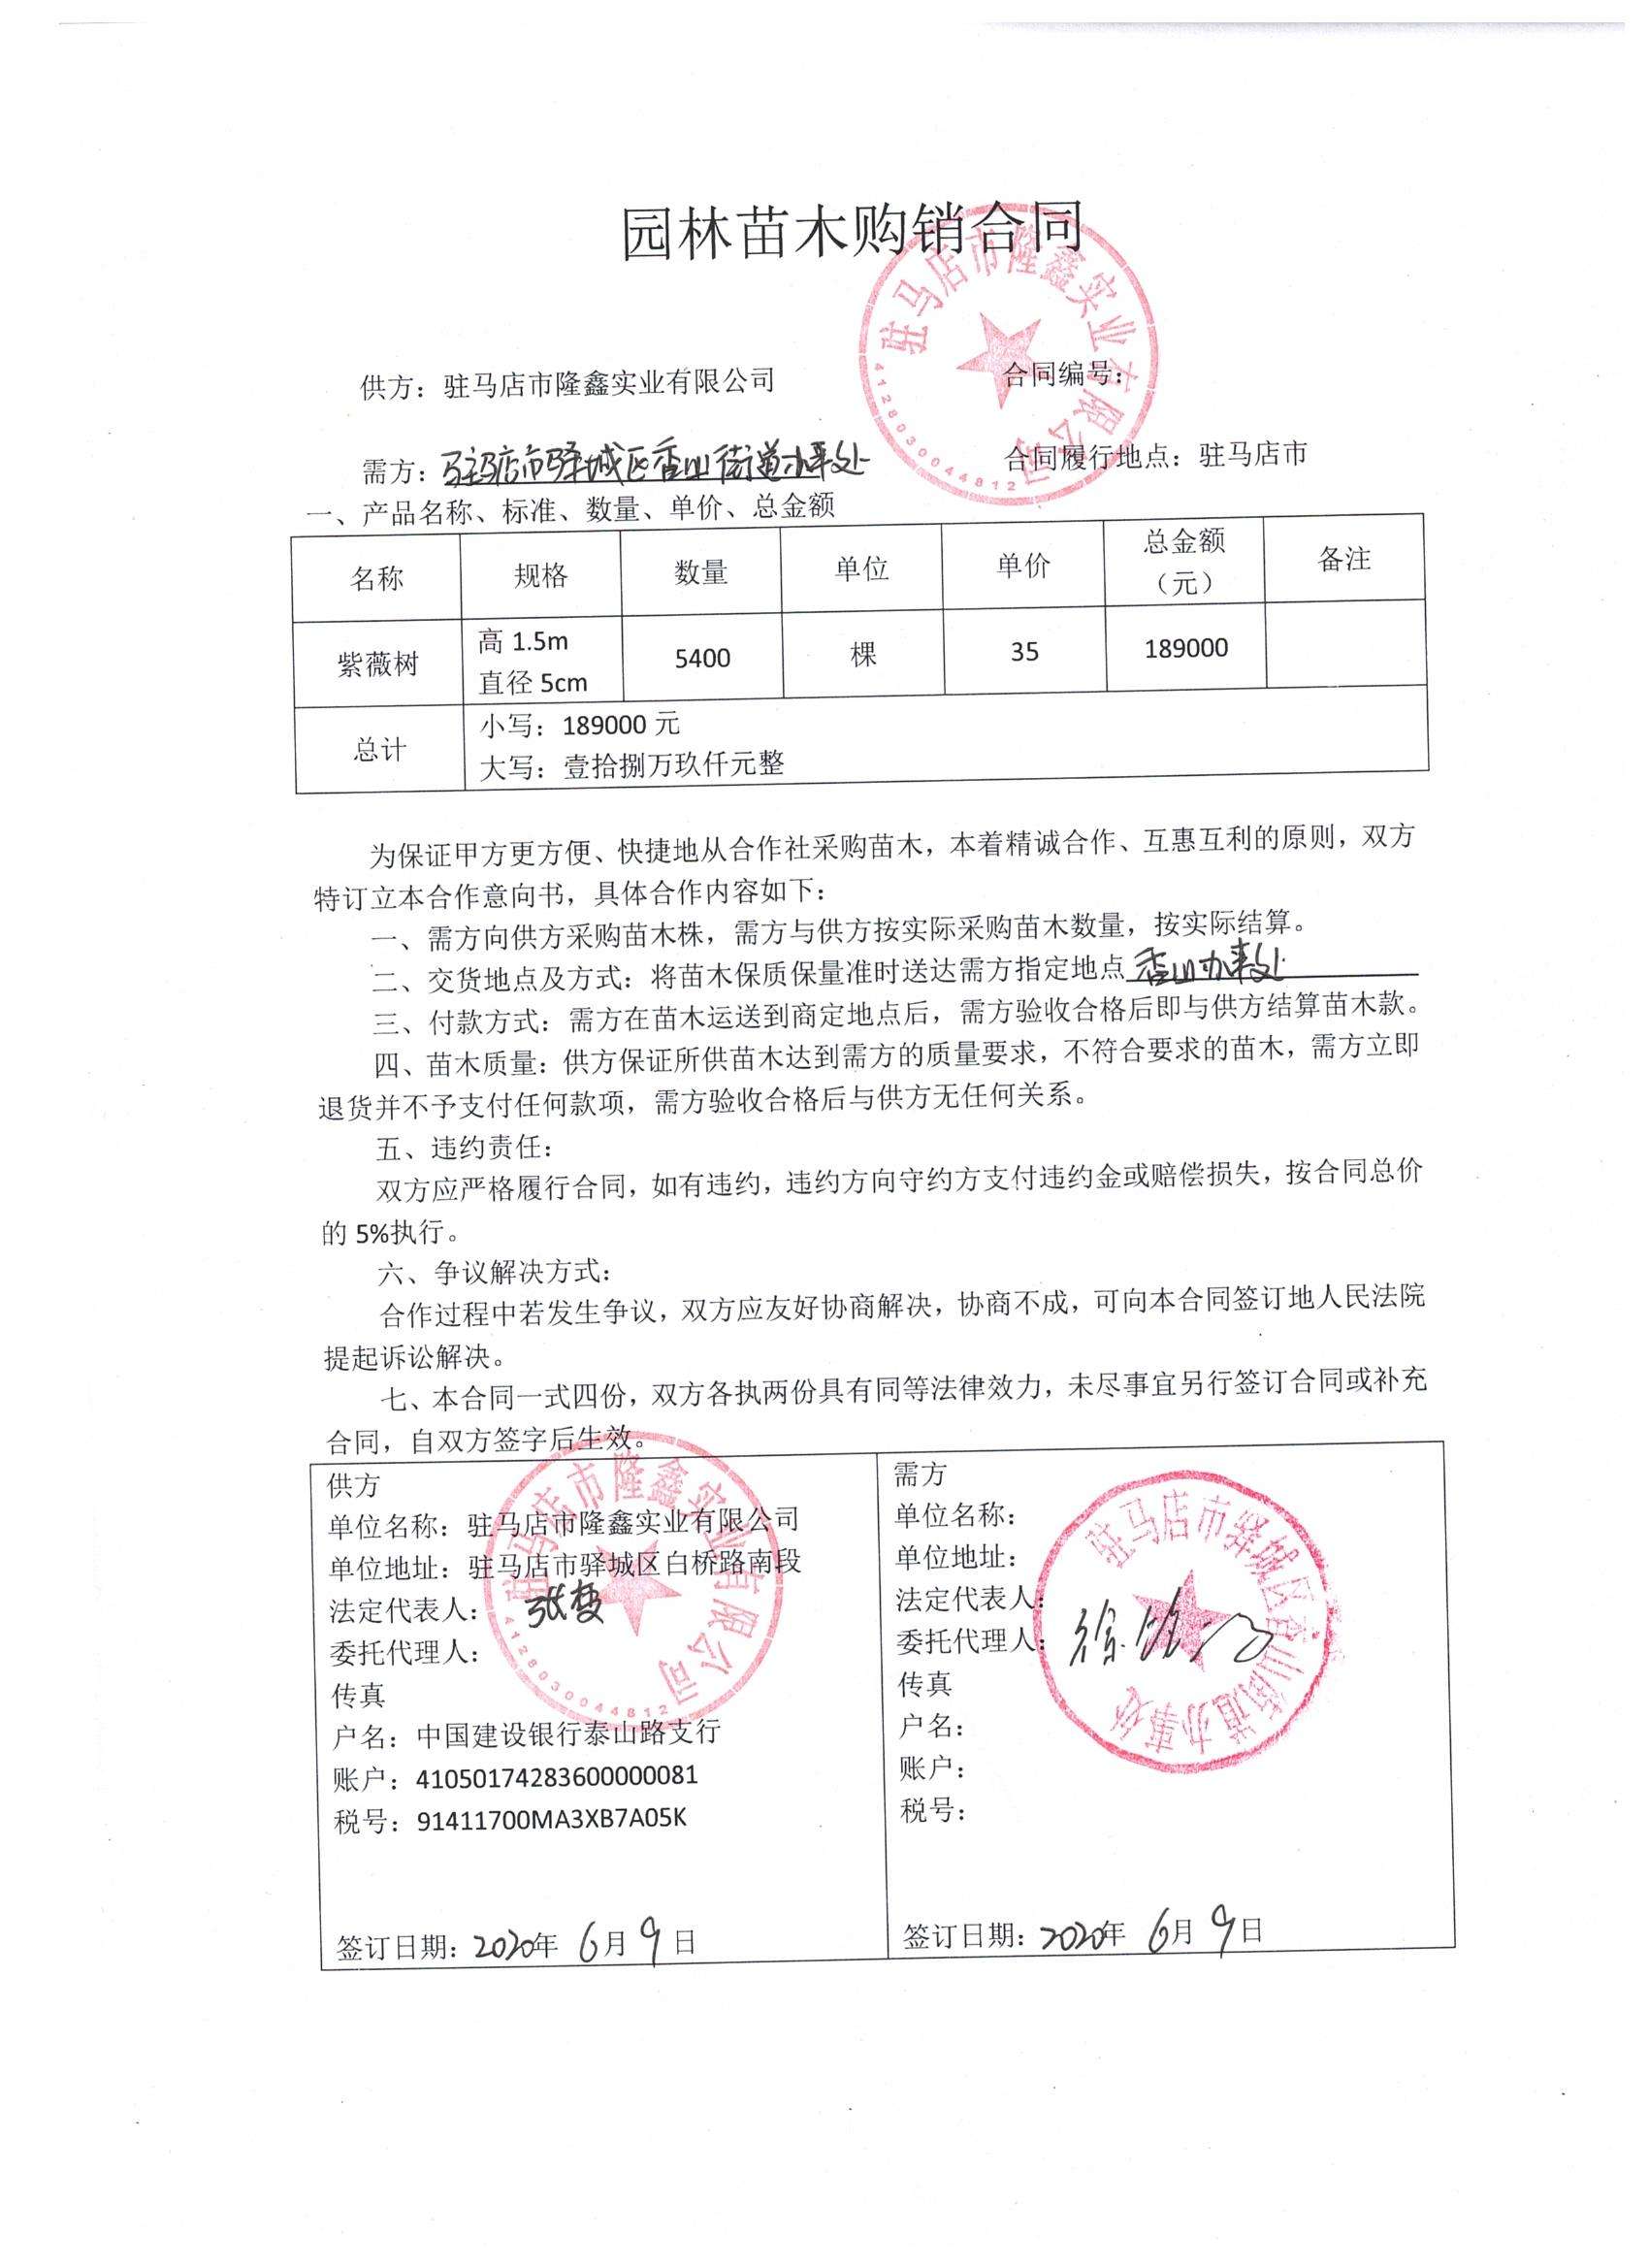 园林苗木购销合同
供方：驻马店市隆鑫实业有限公司 合同编号：
需方：驻马店市驿城区香山街道办事处 合同履行地点：驻马店市
一、产品名称、标准、数量、单价、总金额
名称 规格 数量 单位 单价 总金额（元） 备注
紫薇树 高 1.5m 直径 5cm 5400 棵 35 189000
总计 小写：189000 元
大写：壹拾捌万玖仟元整
为保证甲方更方便、快捷地从合作社采购苗木，本着精诚合作、互惠互利的原则，双方
特订立本合作意向书，具体合作内容如下：
一、需方向供方采购苗木株，需方与供方按实际采购苗木数量，按实际结算。
二、交货地点及方式：将苗木保质保量准时送达需方指定地点 香山办事处
三、付款方式：需方在苗木运送到商定地点后，需方验收合格后即与供方结算苗木款。
四、苗木质量：供方保证所供苗木达到需方的质量要求，不符合要求的苗木，需方立即
退货并不予支付任何款项，需方验收合格后与供方无任何关系。
五、违约责任：
双方应严格履行合同，如有违约，违约方向守约方支付违约金或赔偿损失，按合同总价
的 5%执行。
六、争议解决方式：
合作过程中若发生争议，双方应友好协商解决，协商不成，可向本合同签订地人民法院
提起诉讼解决。
七、本合同一式四份，双方各执两份具有同等法律效力，未尽事宜另行签订合同或补充
合同，自双方签字后生效。
供方
单位名称：驻马店市隆鑫实业有限公司
单位地址：驻马店市驿城区白桥路南段
法定代表人：
委托代理人：
传真
户名：中国建设银行泰山路支行
账户：41050174283600000081
税号：91411700MA3XB7A05K
签订日期：2020年 6月 9日
需方
单位名称：
单位地址：
法定代表人：
委托代理人：
传真
户名：
账户：
税号：
签订日期：2020年 6月 9日
驻马店市隆鑫实业有限公司
4128030044812
驻马店市隆鑫实业有限公司
4128030044812
驻马店市驿城区香山街道办事处